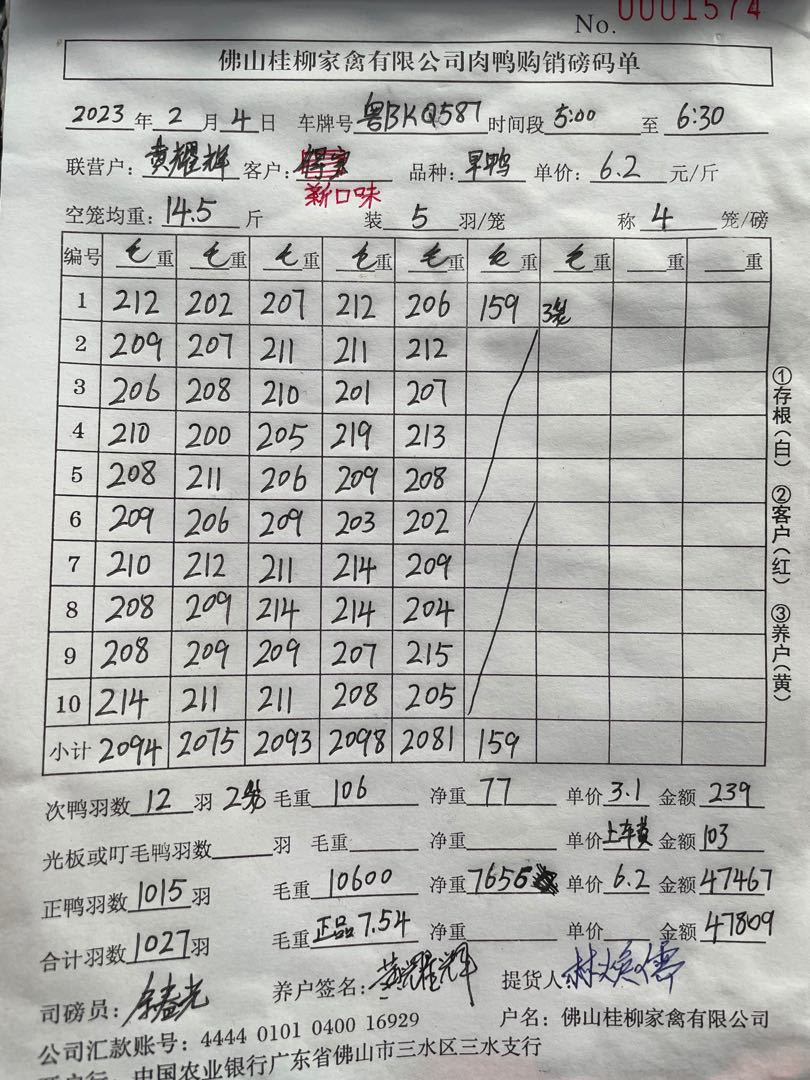 No. 0001574
佛山桂柳家禽有限公司肉鸭购销磅码单
2023年2月4日 车牌号粤BKQ587时间段5:00至6:30
联营户：黄耀辉 客户： 品种：旱鸭 单价：6.2元/斤
新口味
空笼均重：14.5斤 装5羽/笼 称4笼/磅
编号 毛重 毛重 毛重 毛重 毛重 毛重 毛重 重 重
1 212 202 207 212 206 159 3笼
2 209 207 211 211 212
3 206 208 210 201 207
4 210 200 205 219 213
5 208 211 206 209 208
6 209 206 209 203 202
7 210 212 211 214 209
8 208 209 214 214 204
9 208 209 209 207 215
10 214 211 211 208 205
小计 2094 2075 2093 2098 2081 159
次鸭羽数12羽 2笼 毛重106 净重77 单价3.1 金额239
光板或叮毛鸭羽数 羽 毛重 净重 单价上车黄 金额103
正鸭羽数1015羽 毛重10600 净重7656 单价6.2 金额47467
合计羽数1027羽 毛重正品7.54 净重 单价 金额47809
司磅员：余春光 养户签名：黄耀辉 提货人：林焕儒
公司汇款账号：4444 0101 0400 16929 户名：佛山桂柳家禽有限公司
开户行：中国农业银行广东省佛山市三水区三水支行
①存根(白) ②客户(红) ③养户(黄)